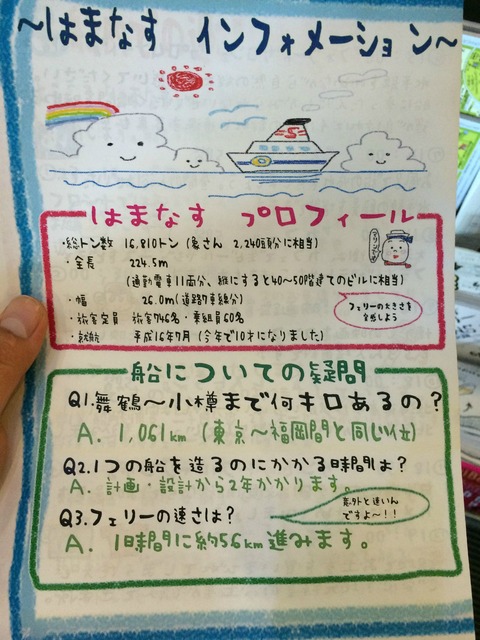 ～はまなす インフォメーション～
はまなす プロフィール
・総トン数 16,810トン (象さん 2,240頭分に相当)
・全長 224.5m
(通勤電車11両分、縦にすると40～50階建てのビルに相当)
・幅 26.0m (道路7車線分)
・旅客定員 旅客746名・乗組員60名
・就航 平成16年7月 (今年で10才になりました)
フェリーの大きさを
実感しよう
船についての疑問
Q1.舞鶴～小樽まで何キロあるの？
A. 1,061km (東京～福岡間と同じ位)
Q2.1つの船を造るのにかかる時間は？
A. 計画・設計から2年かかります。
Q3.フェリーの速さは？
意外と速いん
ですよ～！！
A. 1時間に約56km進みます。